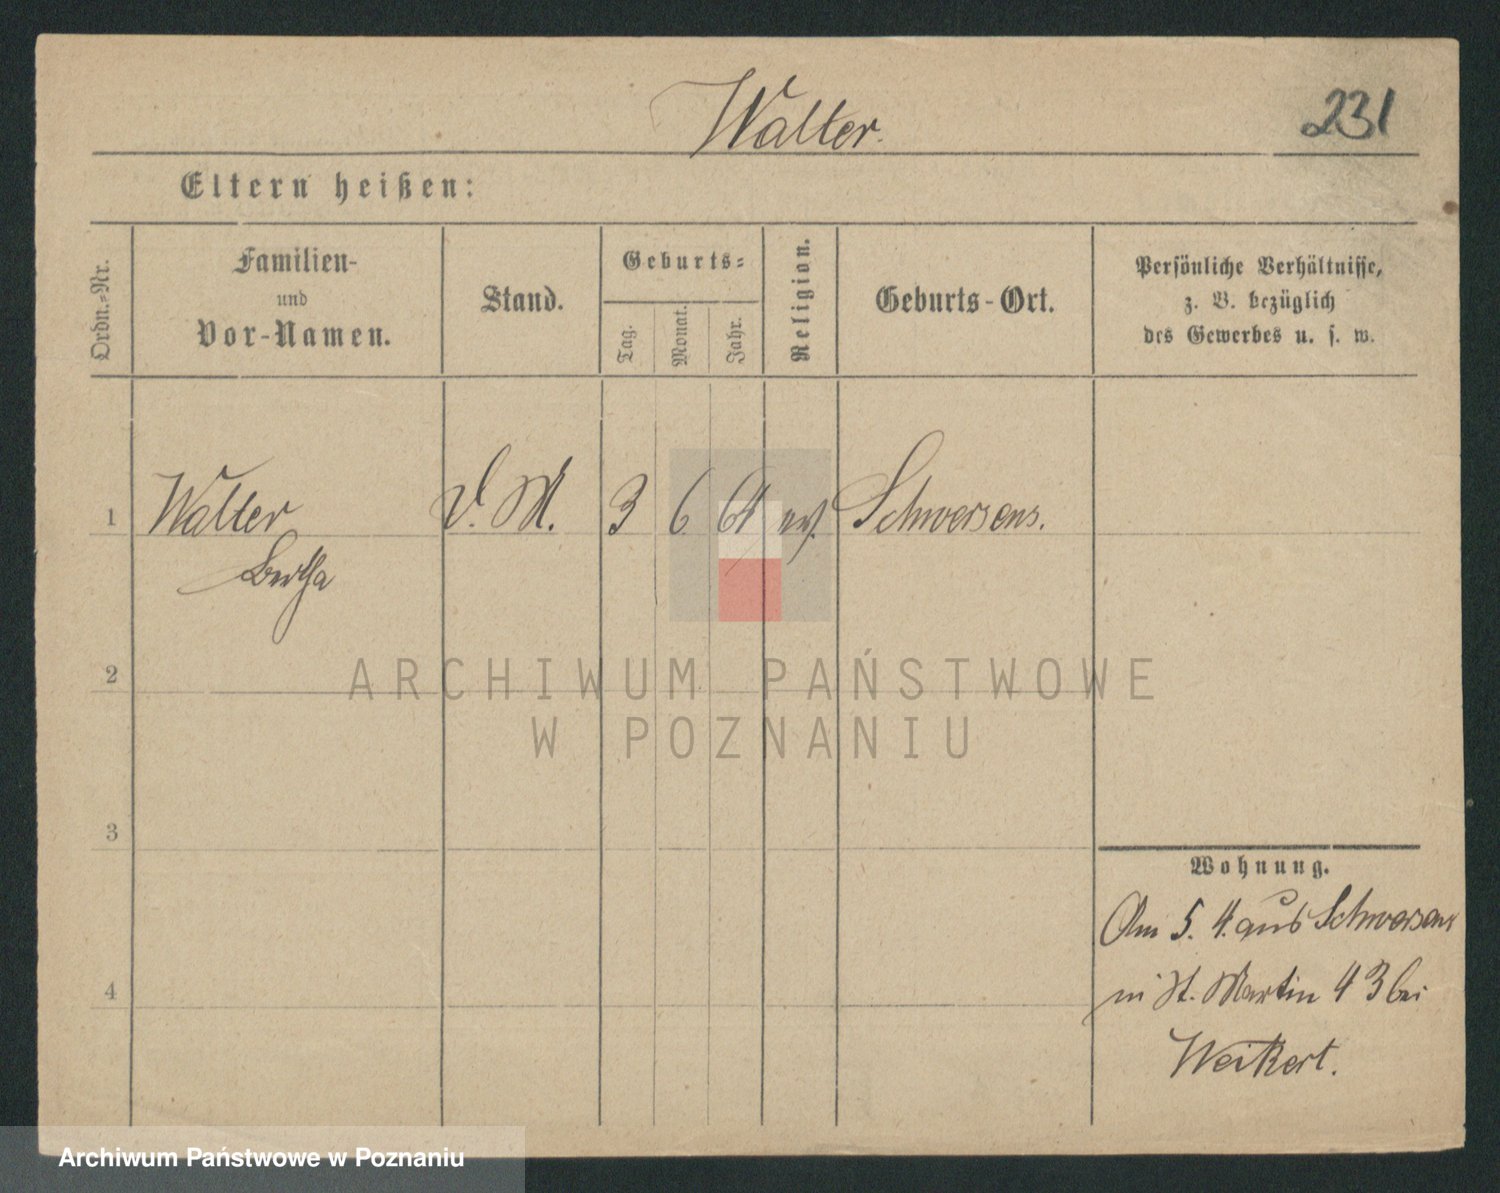 Walter.
231
Eltern heißen:
Ordn.=Nr.
Familien-
und
Vor-Namen.
Stand.
Geburts=
Tag.
Monat.
Jahr.
Religion.
Geburts-Ort.
Persönliche Verhältnisse,
z. B. bezüglich
des Gewerbes u. s. w.
1 Walter D. M. 3 6 64 ev. Schwersens.
Bertha
2
3
4
Wohnung.
Am 5. 4. aus Schwersens
in St. Martin 43 bei
Weikert.
ARCHIWUM PAŃSTWOWE
W POZNANIU
Archiwum Państwowe w Poznaniu